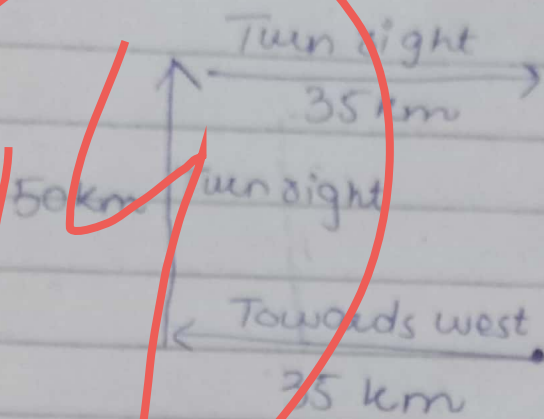 Turn right
35 km
50km Turn right
Towards west
35 km